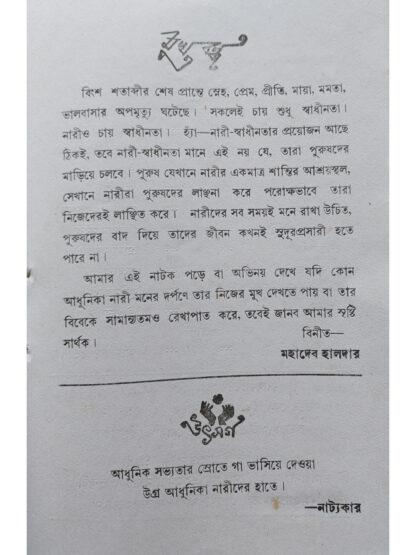 মুখবন্ধ
বিংশ শতাব্দীর শেষ প্রান্তে স্নেহ, প্রেম, প্রীতি, মায়া, মমতা,
ভালবাসার অপমৃত্যু ঘটেছে। সকলেই চায় শুধু স্বাধীনতা।
নারীও চায় স্বাধীনতা। হ্যাঁ—নারী-স্বাধীনতার প্রয়োজন আছে
ঠিকই, তবে নারী-স্বাধীনতা মানে এই নয় যে, তারা পুরুষদের
মাড়িয়ে চলবে। পুরুষ যেখানে নারীর একমাত্র শান্তির আশ্রয়স্থল,
সেখানে নারীরা পুরুষদের লাঞ্ছনা করে পরোক্ষভাবে তারা
নিজেদেরই লাঞ্ছিত করে। নারীদের সব সময়ই মনে রাখা উচিত,
পুরুষদের বাদ দিয়ে তাদের জীবন কখনই সুদূরপ্রসারী হতে
পারে না।
আমার এই নাটক পড়ে বা অভিনয় দেখে যদি কোন
আধুনিকা নারী-মনের দর্পণে তার নিজের মুখ দেখতে পায় বা তার
বিবেকে সামান্যতমও রেখাপাত করে, তবেই জানব আমার সৃষ্টি
সার্থক।
বিনীত—
মহাদেব হালদার
উৎসর্গ
আধুনিক সভ্যতার স্রোতে গা ভাসিয়ে দেওয়া
উগ্র আধুনিকা নারীদের হাতে।
—নাট্যকার